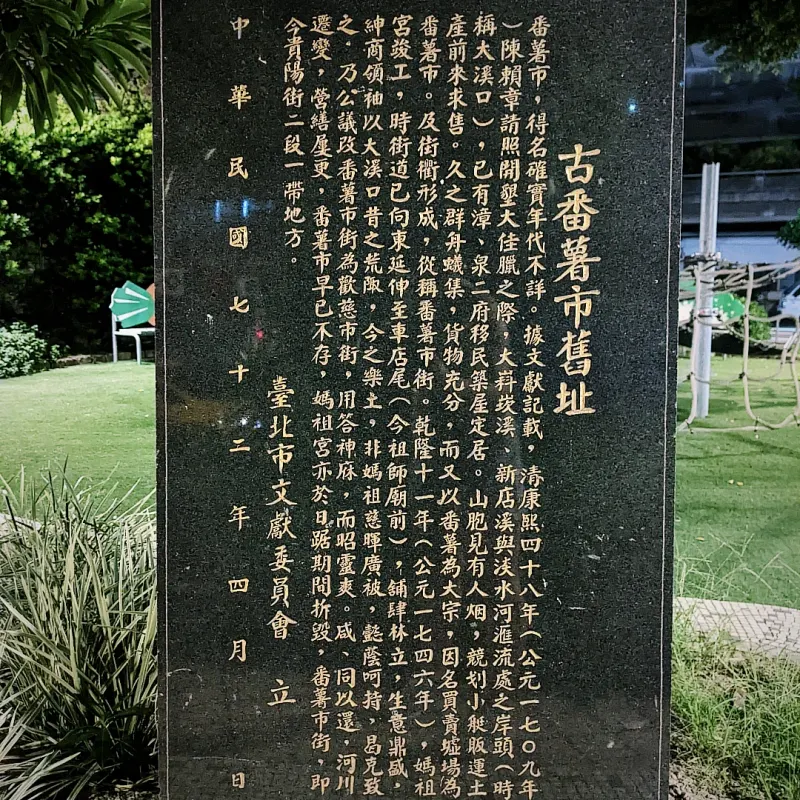 古番薯市舊址
番薯市，得名確實年代不詳。據文獻記載，清康熙四十八年（公元一七〇九年
）陳賴章請照開墾大佳臘之際，大嵙崁溪、新店溪與淡水河滙流處之岸頭（時
稱大溪口），已有漳、泉二府移民築屋定居。山胞見有人烟，競划小艇販運土
產前來求售。久之群舟蟻集，貨物充分，而又以番薯為大宗，因名買賣墟場為
番薯市。及街衢形成，從稱番薯市街。乾隆十一年（公元一七四六年），媽祖
宮竣工，時街道已向東延伸至車店尾（今祖師廟前），舖肆林立，生意鼎盛，
紳商領袖以大溪口昔之荒陬，今之樂土，非媽祖慈暉廣被，懿蔭呵持，曷克致
之。乃公議改番薯市街為歡慈市街，用答神庥，而昭靈爽。咸、同以還，河川
遷變，營繕屢更，番薯市早已不存，媽祖宮亦於日踞期間折毀，番薯市街，即
今貴陽街二段一帶地方。
臺北市文獻委員會 立
中華民國七十二年四月 日